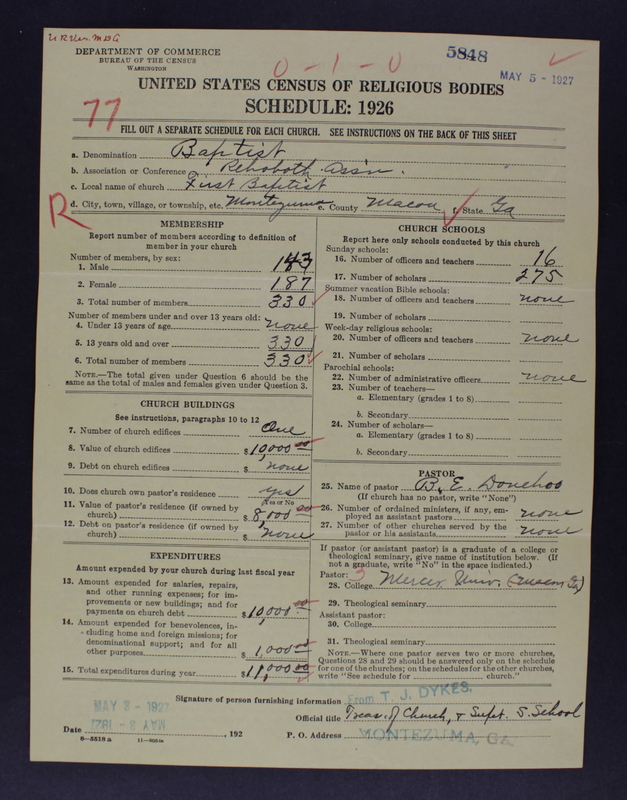 DEPARTMENT OF COMMERCE
BUREAU OF THE CENSUS
WASHINGTON
0-1-0
5848
MAY 5 - 1927
UNITED STATES CENSUS OF RELIGIOUS BODIES
SCHEDULE: 1926
77
FILL OUT A SEPARATE SCHEDULE FOR EACH CHURCH. SEE INSTRUCTIONS ON THE BACK OF THIS SHEET
a. Denomination Baptist
b. Association or Conference Rehoboth Ass'n.
c. Local name of church First Baptist
d. City, town, village, or township, etc. Montezuma e. County Macon f. State Ga
R
MEMBERSHIP
Report number of members according to definition of
member in your church
Number of members, by sex:
1. Male 143
2. Female 187
3. Total number of members 330
Number of members under and over 13 years old:
4. Under 13 years of age none
5. 13 years old and over 330
6. Total number of members 330
NOTE.—The total given under Question 6 should be the
same as the total of males and females given under Question 3.
CHURCH BUILDINGS
See instructions, paragraphs 10 to 12
7. Number of church edifices One
8. Value of church edifices $10,000 00
9. Debt on church edifices $ none
10. Does church own pastor's residence yes
(Yes or No)
11. Value of pastor's residence (if owned by
church) $8,000 00
12. Debt on pastor's residence (if owned by
church) $ none
EXPENDITURES
Amount expended by your church during last fiscal year
13. Amount expended for salaries, repairs,
and other running expenses; for im-
provements or new buildings; and for
payments on church debt $10,000 00
14. Amount expended for benevolences, in-
cluding home and foreign missions; for
denominational support; and for all
other purposes $1,000 00
15. Total expenditures during year $11,000 00
CHURCH SCHOOLS
Report here only schools conducted by this church
Sunday schools:
16. Number of officers and teachers 16
17. Number of scholars 275
Summer vacation Bible schools:
18. Number of officers and teachers none
19. Number of scholars
Week-day religious schools:
20. Number of officers and teachers none
21. Number of scholars
Parochial schools:
22. Number of administrative officers none
23. Number of teachers—
a. Elementary (grades 1 to 8)
b. Secondary
24. Number of scholars—
a. Elementary (grades 1 to 8)
b. Secondary
PASTOR
25. Name of pastor B. E. Donehoo
(If church has no pastor, write "None")
26. Number of ordained ministers, if any, em-
ployed as assistant pastors none
27. Number of other churches served by the
pastor or his assistants none
If pastor (or assistant pastor) is a graduate of a college or
theological seminary, give name of institution below. (If
not a graduate, write "No" in the space indicated.)
Pastor: 3
28. College Mercer Univ. (Macon, Ga)
29. Theological seminary
Assistant pastor:
30. College
31. Theological seminary
NOTE.—Where one pastor serves two or more churches,
Questions 28 and 29 should be answered only on the schedule
for one of the churches; on the schedules for the other churches,
write "See schedule for church."
Signature of person furnishing information From T. J. DYKES,
Official title Treas. of Church, & Supt. S. School
MAY 3 - 1927
MAY 3 - 1927
Date , 192 P. O. Address MONTEZUMA, GA.
8—5518a 11—9054